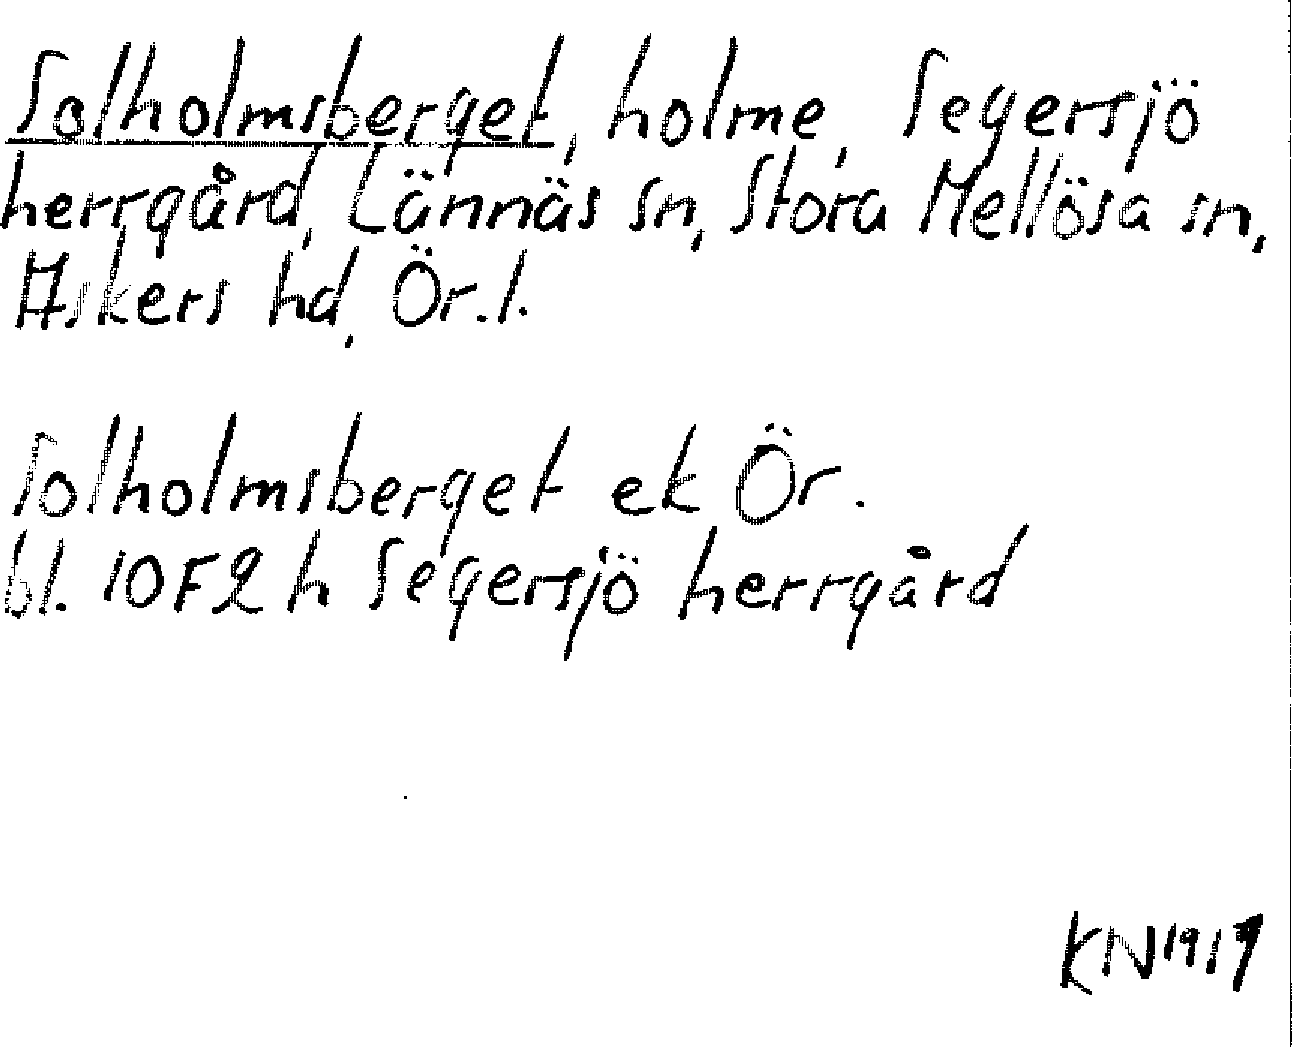 Solholmsberget, holme, Segersjö
herrgård, Lännäs sn, Stora Mellösa sn,
Askers hd, Ör.l.
Solholmsberget ek Ör.
bl. 10F2h Segersjö herrgård
KN1919